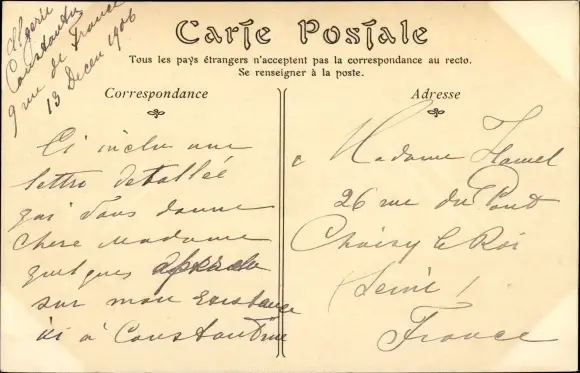 Algerie
Constantine
9 rue de France
13 Decem 1906
Carte Postale
Tous les pays étrangers n'acceptent pas la correspondance au recto.
Se renseigner à la poste.
Correspondance
Ci inclu une
lettre detallée
qui vous donne
Chere Madame
quelques
sur mon existence
ici à Constantine
Adresse
a Madame Hamel
26 rue du Pont
Choisy le Roi
(Seine)
France